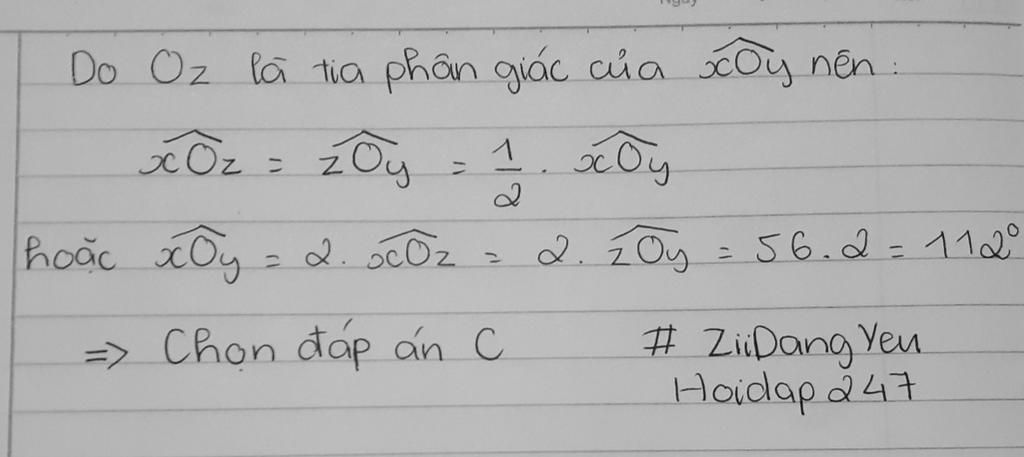 Do Oz là tia phân giác của xÔy nên:
xÔz = zÔy = 1/2 . xÔy
hoặc xÔy = 2. xÔz = 2. zÔy = 56.2 = 112°
=> Chọn đáp án C
# ZiiDangYeu
Hoidap247